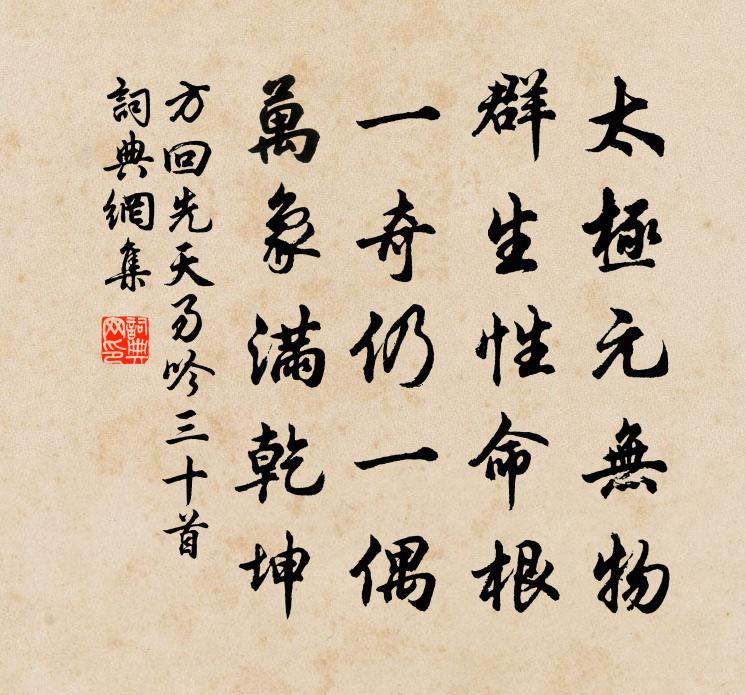 太極元無物
群生性命根
一奇仍一偶
萬象滿乾坤
方回先天易吟三十首
詞典網集
詞典網印